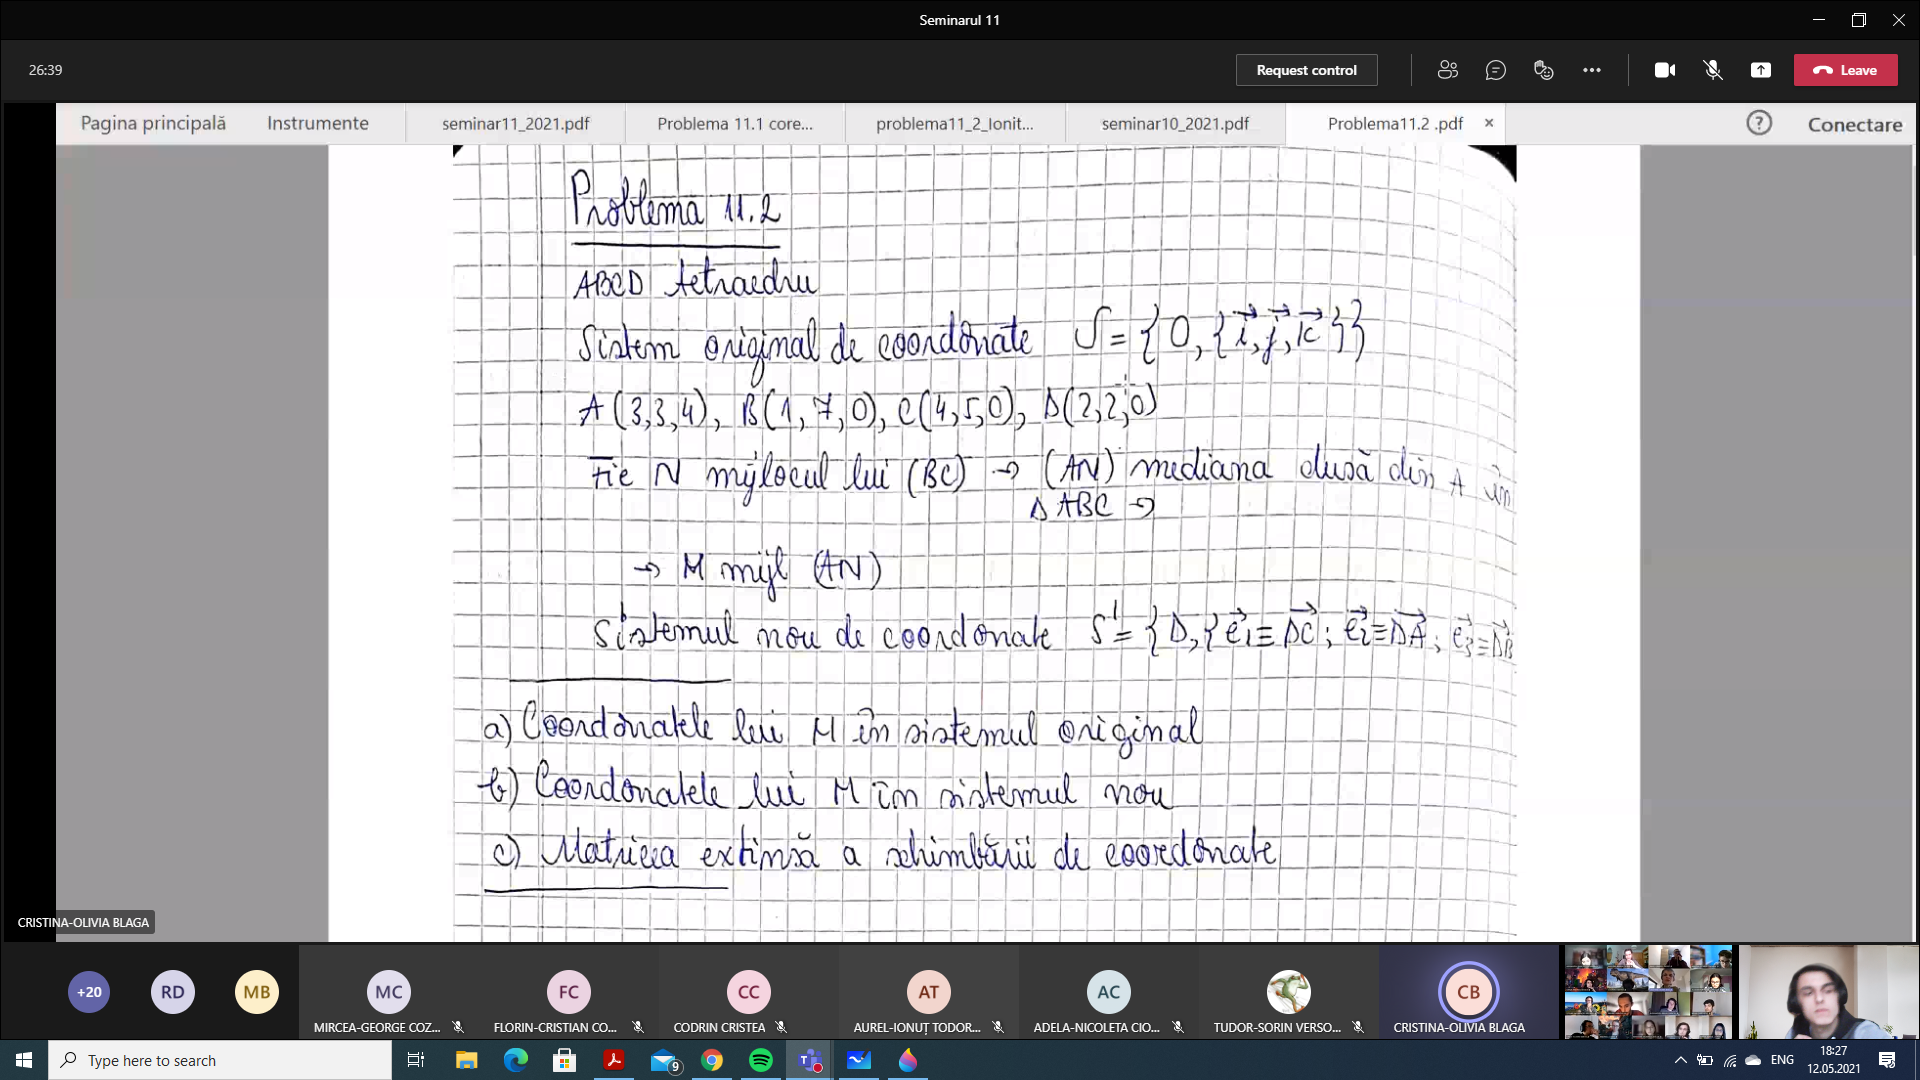 Seminarul 11
26:39
Request control
Leave
Pagina principală
Instrumente
seminar11_2021.pdf
Problema 11.1 core...
problema11_2_Ionit...
seminar10_2021.pdf
Problema11.2 .pdf
Conectare
Problema 11.2
ABCD tetraedru
Sistem original de coordonate S = {O, {i, j, k}}
A(3,3,4), B(1,7,0), C(4,5,0), D(2,2,0)
Fie N mijlocul lui (BC) → (AN) mediana dusă din A în
Δ ABC →
→ M mijl (AN)
Sistemul nou de coordonate S' = {D, {e1 ≡ DC ; e2 ≡ DA ; e3 ≡ DB
a) Coordonatele lui M în sistemul original
b) Coordonatele lui M în sistemul nou
c) Matricea extinsă a schimbării de coordonate
CRISTINA-OLIVIA BLAGA
+20
RD
MB
MC
MIRCEA-GEORGE COZ...
FC
FLORIN-CRISTIAN CO...
CC
CODRIN CRISTEA
AT
AUREL-IONUȚ TODOR...
AC
ADELA-NICOLETA CIO...
TUDOR-SORIN VERSO...
CB
CRISTINA-OLIVIA BLAGA
Type here to search
9
ENG
18:27
12.05.2021